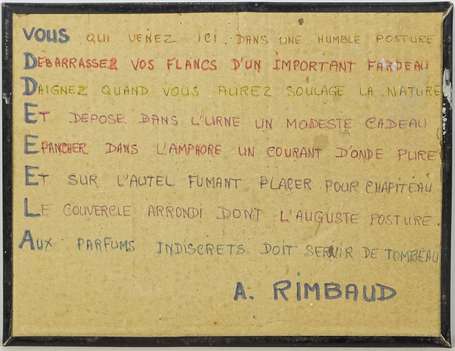 VOUS QUI VENEZ ICI DANS UNE HUMBLE POSTURE
DEBARRASSER VOS FLANCS D'UN IMPORTANT FARDEAU
DAIGNEZ QUAND VOUS AUREZ SOULAGE LA NATURE
ET DEPOSE DANS L'URNE UN MODESTE CADEAU
EPANCHER DANS L'AMPHORE UN COURANT D'ONDE PURE
ET SUR L'AUTEL FUMANT PLACER POUR CHAPITEAU
LE COUVERCLE ARRONDI DONT L'AUGUSTE POSTURE..
AUX PARFUMS INDISCRETS DOIT SERVIR DE TOMBEAU
A. RIMBAUD